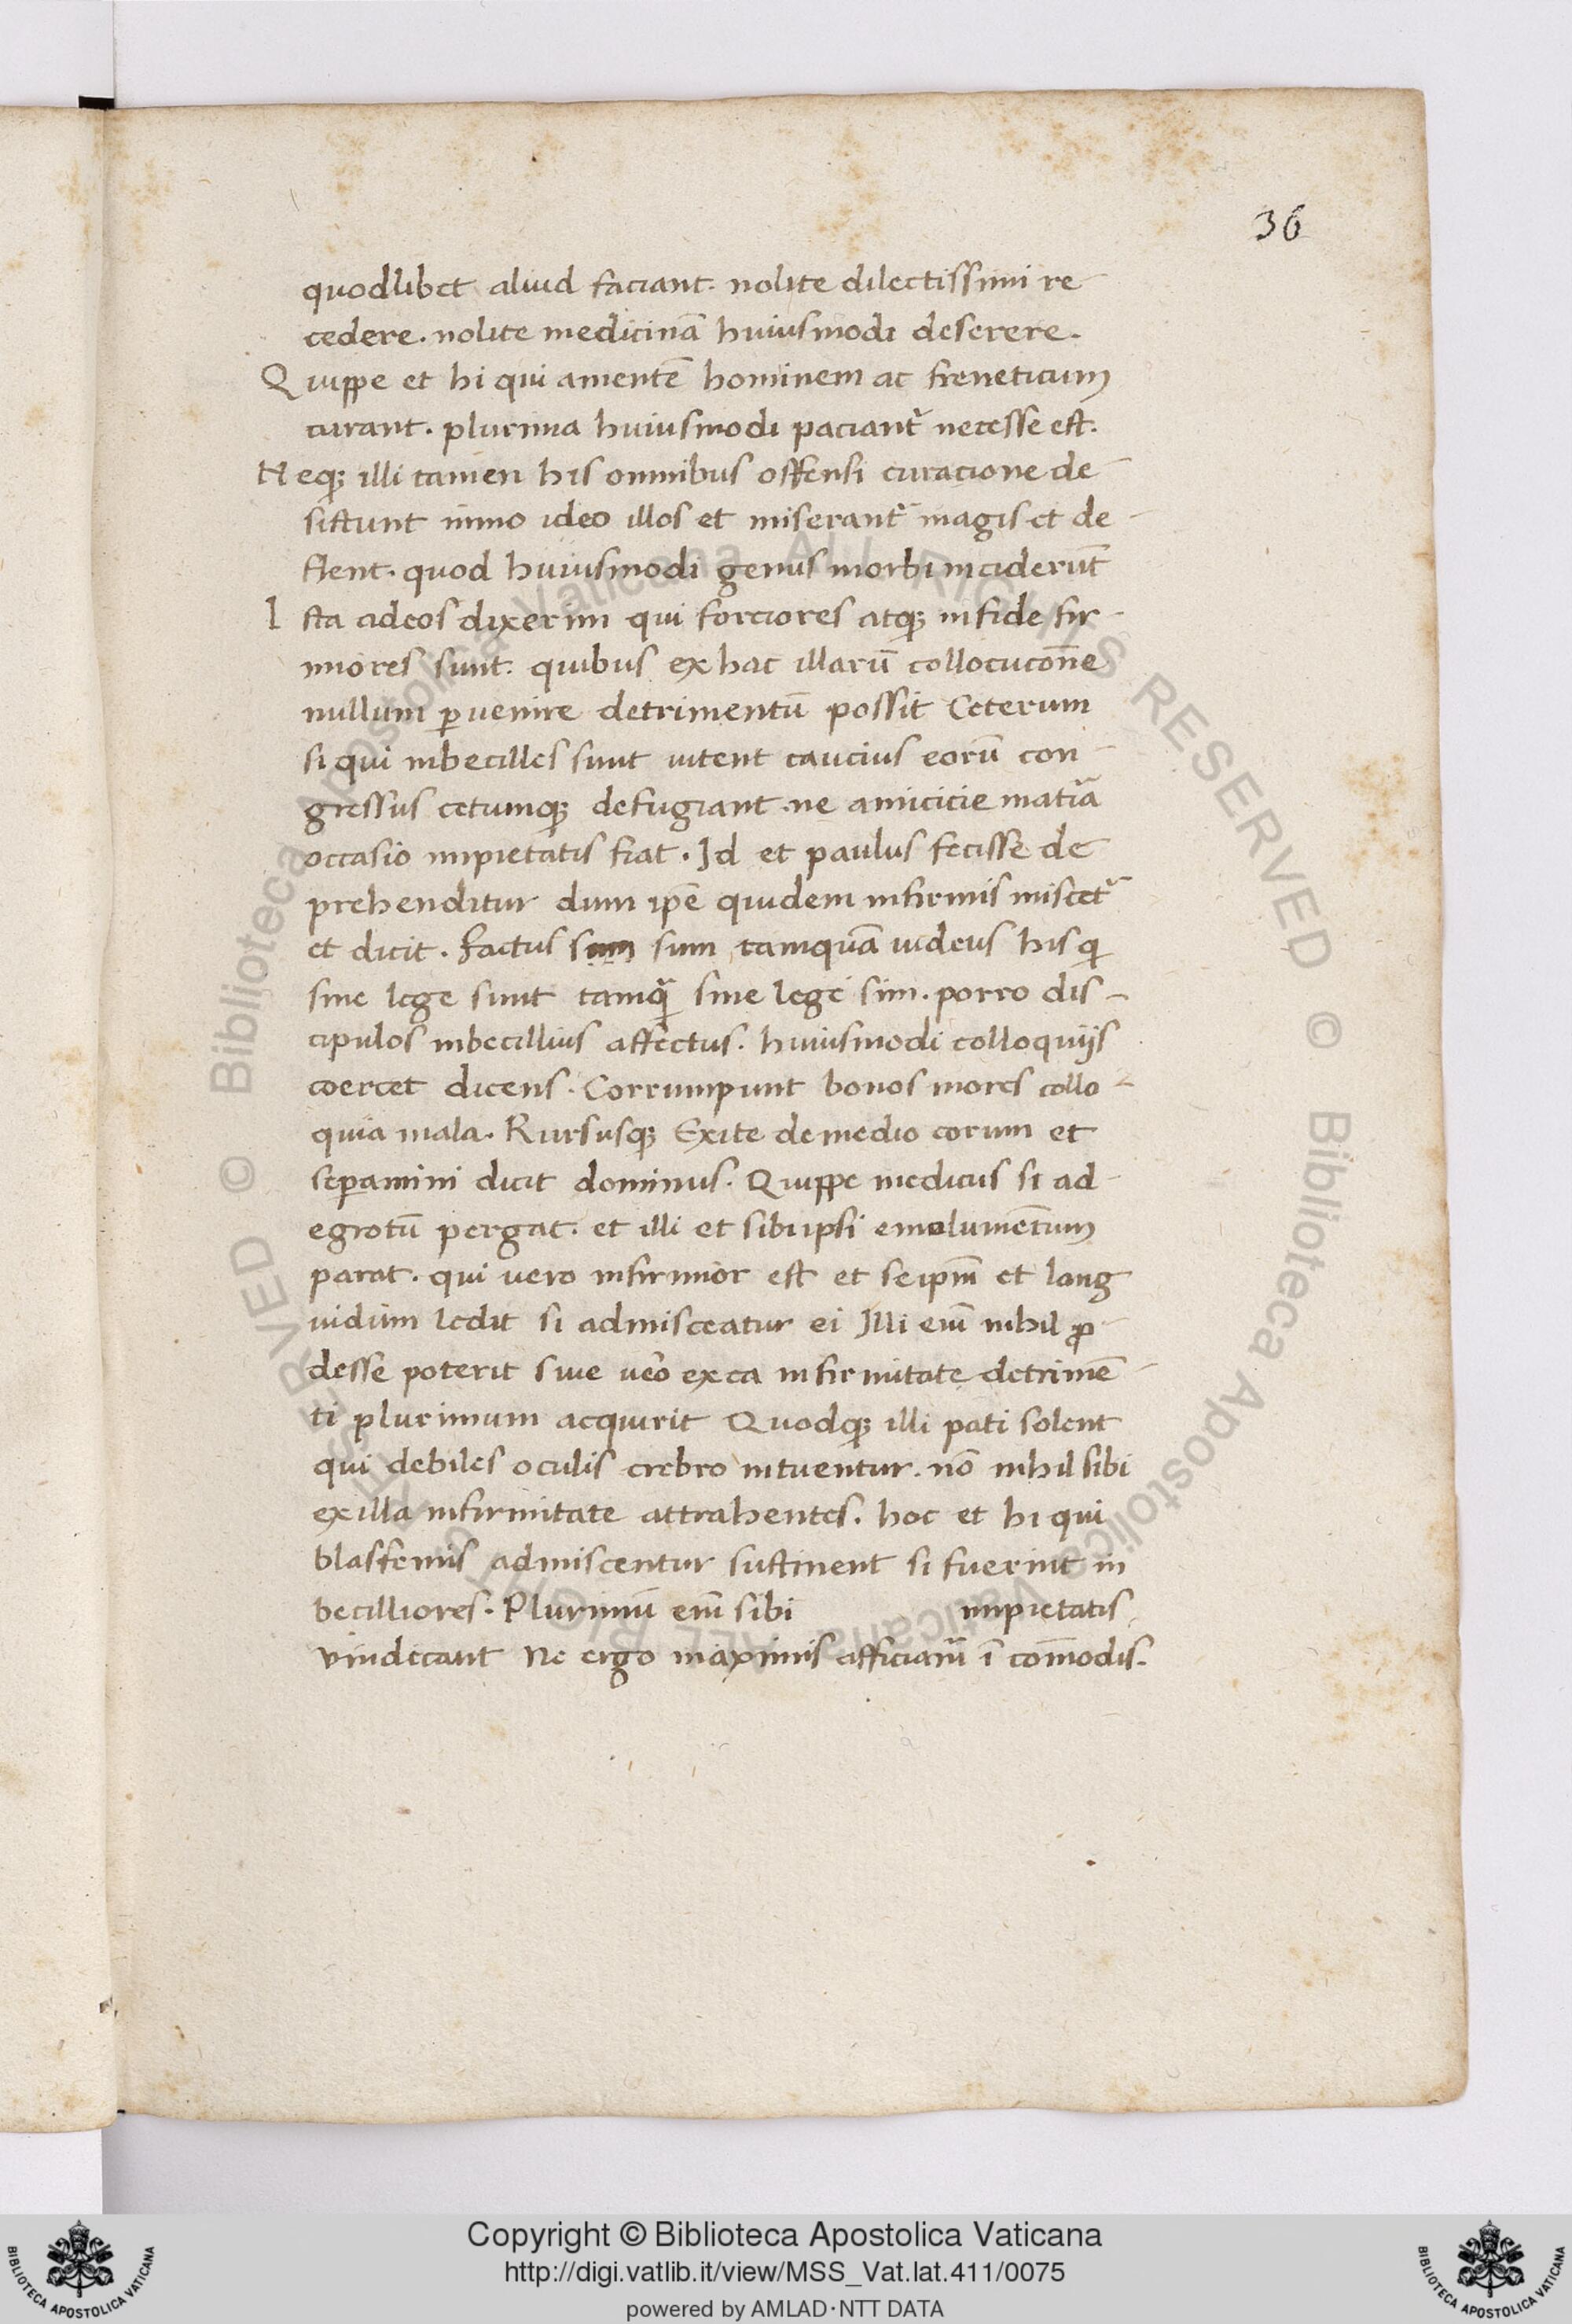 36
quodlibet aliud faciant. nolite dilectissimi re-
cedere. nolite medicinā huiusmodi deserere.
Quippe et hi qui amentē hominem ac freneticum
curant. plurima huiusmodi paciant᷑ necesse est.
Neqꝫ illi tamen his omnibus offensi curacione de-
sistunt immo ideo illos et miserant᷑ magis et de-
flent. quod huiusmodi genus morbi inciderūt
Ista adeos dixerim qui forciores atqꝫ in fide fir-
miores sunt. quibus ex hac illarū collocucōne
nullum ꝑuenire detrimentū possit Ceterum
si qui inbecilles sunt uitent caucius eorū con-
gressus cetumqꝫ defugiant. ne amicicie matīa
occasio impietatis fiat. Id et paulus fecisse de
prehenditur dum ip̄e quidem infirmis miscet᷑
et dicit. Factus sum sum tamquā iudeus his qi
sine lege sunt tamqᷓ sine lege sim. porro dis-
cipulos inbecillius affectus. huiusmodi colloquijs
coercet dicens. Corrumpunt bonos mores collo-
quia mala. Rursusqꝫ Exite de medio eorum et
seꝑamini dicit dominus. Quippe medicus si ad-
egrotū pergat. et illi et sibi ipsi emolumentum
parat. qui uero infirmior est et seip̄m et lang
uidum ledit si admisceatur ei Illi eiī nihil ꝓ-
desse poterit siue uēo ex ea infirmitate detrimē-
ti plurimum acquirit Quodqꝫ illi pati solent
qui debiles oculis crebro intuentur. nō nihil sibi
ex illa infirmitate attrahentes. hoc et hi qui
blasfemis admiscentur sustinent si fuerint in
becilliores. Plurimū eiī sibi impietatis
vindecant Ne ergo maximis afficiam᷑ ī com̄odis.
© Biblioteca Apostolica Vaticana ALL RIGHTS RESERVED © Biblioteca Apostolica Vaticana ALL RIGHTS RESERVED
Copyright © Biblioteca Apostolica Vaticana
http://digi.vatlib.it/view/MSS_Vat.lat.411/0075
powered by AMLAD·NTT DATA
BIBLIOTECA APOSTOLICA VATICANA
BIBLIOTECA APOSTOLICA VATICANA